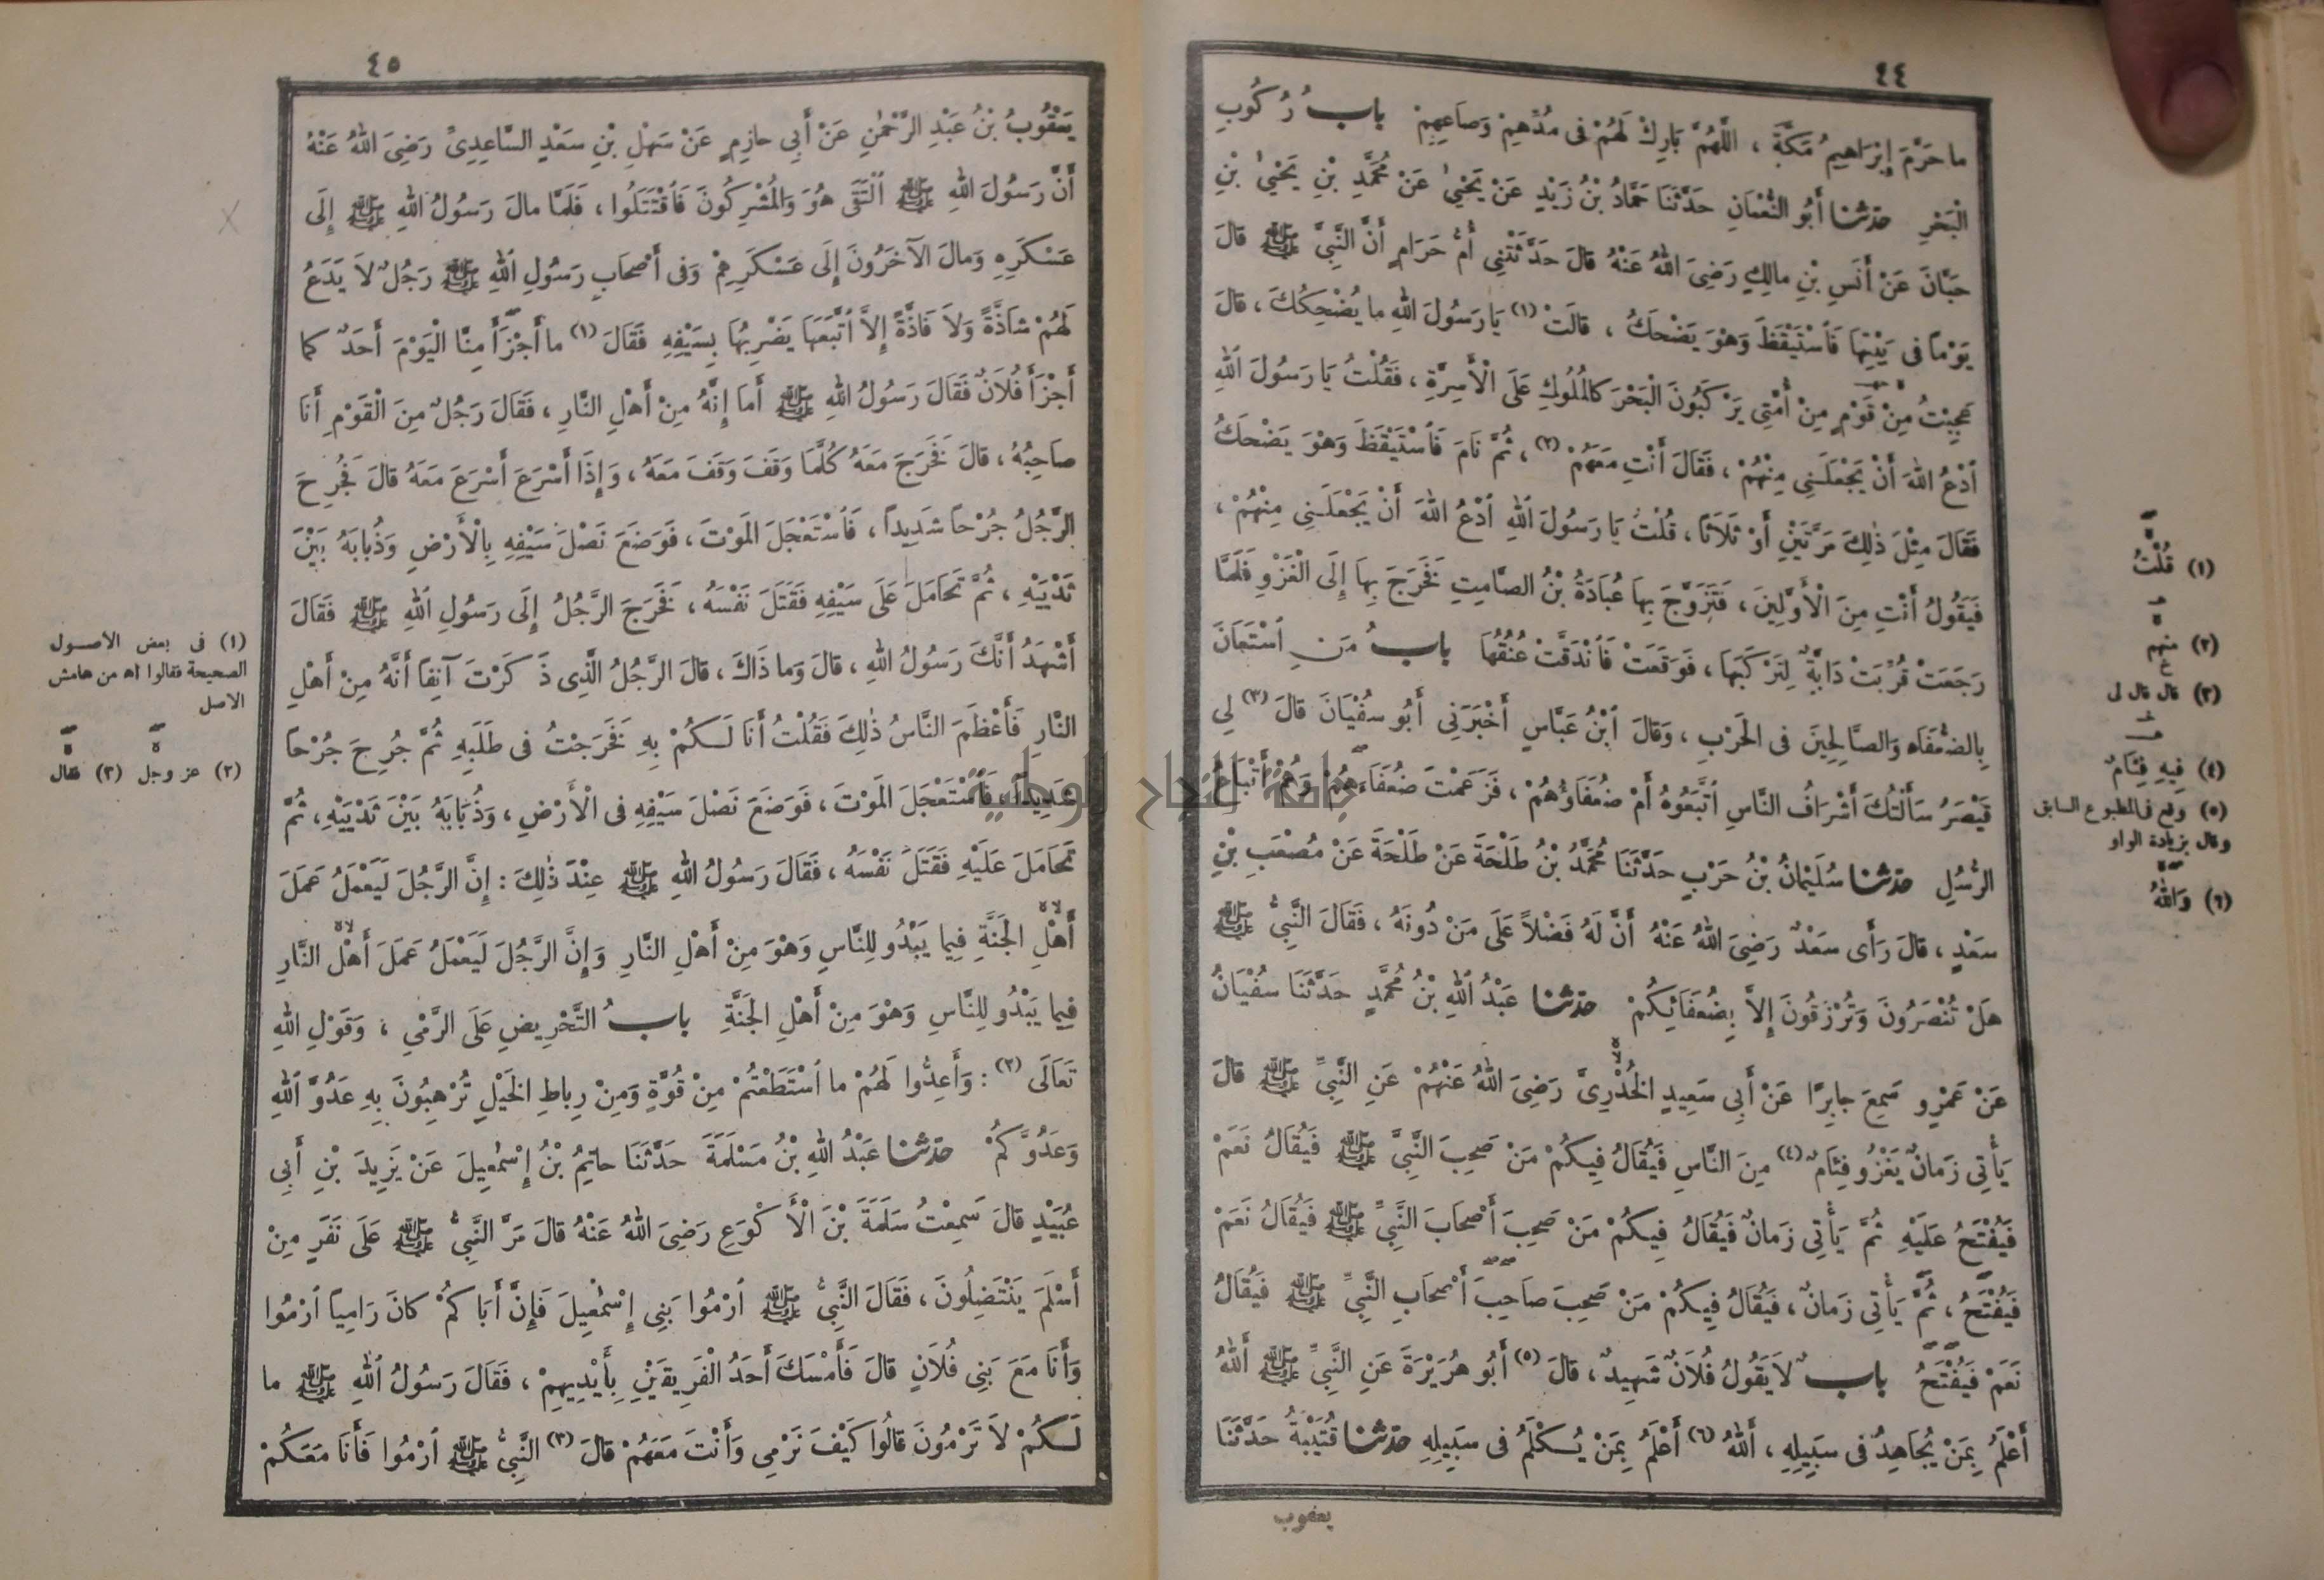 ٤٤
ما حَرَّمَ إِبْرَاهِيمُ مَكَّةَ ، اللَّهُمَّ بَارِكْ لَهُمْ فى مُدِّهِمْ وَصَاعِهِمْ بابُ رُكُوبِ
الْبَحْرِ حدثنا أَبُو النُّعْمَانِ حَدَّثَنَا حَمَّادُ بْنُ زَيْدٍ عَنْ يَحْيىٰ عَنْ مُحَمَّدِ بْنِ يَحْيىٰ بْنِ
حَبَّانَ عَنْ أَنَسِ بْنِ مالِكٍ رَضِىَ اللهُ عَنْهُ قالَ حَدَّثَتْنِى أُمُّ حَرَامٍ أَنَّ النَّبِىَّ ﷺ قالَ
يَوْمًا فى بَيْتِهَا فَاسْتَيْقَظَ وَهْوَ يَضْحَكُ ، قالَتْ (١) يَا رَسُولَ اللهِ ما يُضْحِكُكَ ، قالَ
عَجِبْتُ مِنْ قَوْمٍ مِنْ أُمَّتِى يَرْكَبُونَ الْبَحْرَ كالْمُلُوكِ عَلَى الْأَسِرَّةِ ، فَقُلْتُ يَا رَسُولَ اللهِ
ٱدْعُ اللهَ أَنْ يَجْعَلَنِى مِنْهُمْ ، فَقَالَ أَنْتِ مَعَهُمْ (٢) ، ثُمَّ نَامَ فَاسْتَيْقَظَ وَهْوَ يَضْحَكُ
فَقَالَ مِثْلَ ذٰلِكَ مَرَّتَيْنِ أَوْ ثَلَاثًا ، قُلْتُ يَا رَسُولَ اللهِ ٱدْعُ اللهَ أَنْ يَجْعَلَنِى مِنْهُمْ ،
فَيَقُولُ أَنْتِ مِنَ الْأَوَّلِينَ ، فَتَزَوَّجَ بِهَا عُبَادَةُ بْنُ الصَّامِتِ نَفَرَجَ بِهَا إِلَى الْغَزْوِ فَلَمَّا
رَجَعَتْ قُرِّبَتْ دَابَّةٌ لِتَرْكَبَهَا ، فَوَقَعَتْ فَانْدَقَّتْ عُنُقُهَا بابُ مَنِ ٱسْتَعَانَ
بِالضُّعَفَاءِ وَالصَّالِحِينَ فى الْحَرْبِ ، وَقالَ ٱبْنُ عَبَّاسٍ أَخْبَرَنِى أَبُو سُفْيَانَ قالَ (٣) لِى
قَيْصَرُ سَأَلْتُكَ أَشْرَافُ النَّاسِ ٱتَّبَعُوهُ أَمْ ضُعَفَاؤُهُمْ ، فَزَعَمْتَ ضُعَفَاءَهُمْ وَهُمْ أَتْبَاعُ
الرُّسُلِ حدثنا سُلَيْمَانُ بْنُ حَرْبٍ حَدَّثَنَا مُحَمَّدُ بْنُ طَلْحَةَ عَنْ طَلْحَةَ عَنْ مُصْعَبِ بْنِ
سَعْدٍ ، قالَ رَأَى سَعْدٌ رَضِىَ اللهُ عَنْهُ أَنَّ لَهُ فَضْلاً عَلَى مَنْ دُونَهُ ، فَقَالَ النَّبِىُّ ﷺ
هَلْ تُنْصَرُونَ وَتُرْزَقُونَ إِلاَّ بِضُعَفَائِكُمْ حدثنا عَبْدُ اللهِ بْنُ مُحَمَّدٍ حَدَّثَنَا سُفْيَانُ
عَنْ عَمْرٍو سَمِعَ جابِرًا عَنْ أَبِى سَعِيدٍ الْخُدْرِىِّ رَضِىَ اللهُ عَنْهُمْ عَنِ النَّبِىِّ ﷺ قالَ
يَأْتِى زَمانٌ يَغْزُو فِئَامٌ (٤) مِنَ النَّاسِ فَيُقَالُ فِيكُمْ مَنْ صَحِبَ النَّبِىَّ ﷺ فَيُقَالُ نَعَمْ
فَيُفْتَحُ عَلَيْهِ ثُمَّ يَأْتِى زَمانٌ فَيُقَالُ فِيكُمْ مَنْ صَحِبَ أَصْحَابَ النَّبِىِّ ﷺ فَيُقَالُ نَعَمْ
فَيُفْتَحُ ، ثُمَّ يَأْتِى زَمانٌ ، فَيُقَالُ فِيكُمْ مَنْ صَحِبَ صاحِبَ أَصْحَابِ النَّبِىِّ ﷺ فَيُقَالُ
نَعَمْ فَيُفْتَحُ بابٌ لاَ يَقُولُ فُلاَنٌ شَهِيدٌ ، قالَ (٥) أَبُو هُرَيْرَةَ عَنِ النَّبِىِّ ﷺ ٱللهُ
أَعْلَمُ بِمَنْ يُجَاهِدُ فى سَبِيلِهِ ، ٱللهُ (٦) أَعْلَمُ بِمَنْ يُكْلَمُ فى سَبِيلِهِ حدثنا قُتَيْبَةُ حَدَّثَنَا
يعقوب
(١) قُلْتُ
(٢) منهم
(٣) قال قال لى
(٤) فِيهِ فِئَامٌ
(٥) وقع فى المطبوع السابق
وقال بزيادة الواو
(٦) وَاللهُ
٤٥
يَعْقُوبُ بْنُ عَبْدِ الرَّحْمٰنِ عَنْ أَبِى حازِمٍ عَنْ سَهْلِ بْنِ سَعْدٍ السَّاعِدِىِّ رَضِىَ اللهُ عَنْهُ
أَنَّ رَسُولَ اللهِ ﷺ ٱلْتَقَى هُوَ وَالْمُشْرِكُونَ فَاقْتَتَلُوا ، فَلَمَّا مالَ رَسُولُ اللهِ ﷺ إِلَى
عَسْكَرِهِ وَمالَ الآخَرُونَ إِلَى عَسْكَرِهِمْ وَفى أَصْحَابِ رَسُولِ اللهِ ﷺ رَجُلٌ لاَ يَدَعُ
لَهُمْ شاذَّةً وَلاَ فَاذَّةً إِلاَّ ٱتَّبَعَهَا يَضْرِبُهَا بِسَيْفِهِ فَقَالَ (١) ما أَجْزَأَ مِنَّا الْيَوْمَ أَحَدٌ كما
أَجْزَأَ فُلاَنٌ فَقَالَ رَسُولُ اللهِ ﷺ أَما إِنَّهُ مِنْ أَهْلِ النَّارِ ، فَقَالَ رَجُلٌ مِنَ الْقَوْمِ أَنَا
صاحِبُهُ ، قالَ نَفَرَجَ مَعَهُ كُلَّمَا وَقَفَ وَقَفَ مَعَهُ ، وَإِذَا أَسْرَعَ أَسْرَعَ مَعَهُ قالَ فَجُرِحَ
الرَّجُلُ جُرْحاً شَدِيداً ، فَاسْتَعْجَلَ الْمَوْتَ ، فَوَضَعَ نَصْلَ سَيْفِهِ بِالْأَرْضِ وَذُبابَهُ بَيْنَ
ثَدْيَيْهِ ، ثُمَّ تَحَامَلَ عَلَى سَيْفِهِ فَقَتَلَ نَفْسَهُ ، فَخَرَجَ الرَّجُلُ إِلَى رَسُولِ اللهِ ﷺ فَقَالَ
أَشْهَدُ أَنَّكَ رَسُولُ اللهِ ، قالَ وَما ذَاكَ ، قالَ الرَّجُلُ الَّذِى ذَكَرْتَ آنِفًا أَنَّهُ مِنْ أَهْلِ
النَّارِ فَأَعْظَمَ النَّاسُ ذٰلِكَ فَقُلْتُ أَنَا لَكُمْ بِهِ فَخَرَجْتُ فى طَلَبِهِ ثُمَّ جُرِحَ جُرْحاً
شَدِيداً فَاسْتَعْجَلَ الْمَوْتَ ، فَوَضَعَ نَصْلَ سَيْفِهِ فى الْأَرْضِ ، وَذُبَابَهُ بَيْنَ ثَدْيَيْهِ ، ثُمَّ
تَحَامَلَ عَلَيْهِ فَقَتَلَ نَفْسَهُ ، فَقَالَ رَسُولُ اللهِ ﷺ عِنْدَ ذٰلِكَ : إِنَّ الرَّجُلَ لَيَعْمَلُ عَمَلَ
أَهْلِ الْجَنَّةِ فِيما يَبْدُو لِلنَّاسِ وَهْوَ مِنْ أَهْلِ النَّارِ وَإِنَّ الرَّجُلَ لَيَعْمَلُ عَمَلَ أَهْلِ النَّارِ
فِيما يَبْدُو لِلنَّاسِ وَهْوَ مِنْ أَهْلِ الْجَنَّةِ بابُ التَّحْرِيضِ عَلَى الرَّمْىِ ، وَقَوْلِ اللهِ
تَعَالَى (٢) : وَأَعِدُّوا لَهُمْ ما ٱسْتَطَعْتُمْ مِنْ قُوَّةٍ وَمِنْ رِباطِ الْخَيْلِ تُرْهِبُونَ بِهِ عَدُوَّ اللهِ
وَعَدُوَّكُمْ حدثنا عَبْدُ اللهِ بْنُ مَسْلَمَةَ حَدَّثَنَا حاتِمُ بْنُ إِسْمٰعِيلَ عَنْ يَزِيدَ بْنِ أَبِى
عُبَيْدٍ قالَ سَمِعْتُ سَلَمَةَ بْنَ الْأَكْوَعِ رَضِىَ اللهُ عَنْهُ قالَ مَرَّ النَّبِىُّ ﷺ عَلَى نَفَرٍ مِنْ
أَسْلَمَ يَنْتَضِلُونَ ، فَقَالَ النَّبِىُّ ﷺ ٱرْمُوا بَنِى إِسْمٰعِيلَ فَإِنَّ أَبَاكُمْ كانَ رَامِياً ٱرْمُوا
وَأَنَا مَعَ بَنِى فُلاَنٍ قالَ فَأَمْسَكَ أَحَدُ الْفَرِيقَيْنِ بِأَيْدِيهِمْ ، فَقَالَ رَسُولُ اللهِ ﷺ ما
لَكُمْ لاَ تَرْمُونَ قالُوا كَيْفَ نَرْمِى وَأَنْتَ مَعَهُمْ قالَ (٣) النَّبِىُّ ﷺ ٱرْمُوا فَأَنَا مَعَكُمْ
(١) فى بعض الاصول
الصحيحة فقالوا اه من هامش
الاصل
(٢) عز وجل (٣) فقال
جامعة النجاح الوطنية